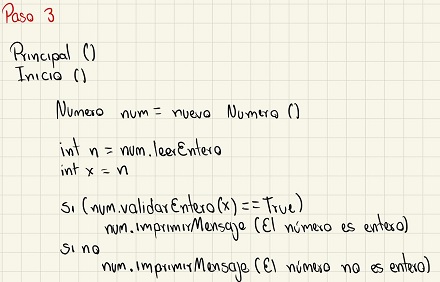 Paso 3
Principal ()
Inicio ()
Numero num = nuevo Numero ()
int n = num.leerEntero
int x = n
si (num.validarEntero(x) == True)
num.imprimirMensaje (El número es entero)
si no
num.imprimirMensaje (El número no es entero)